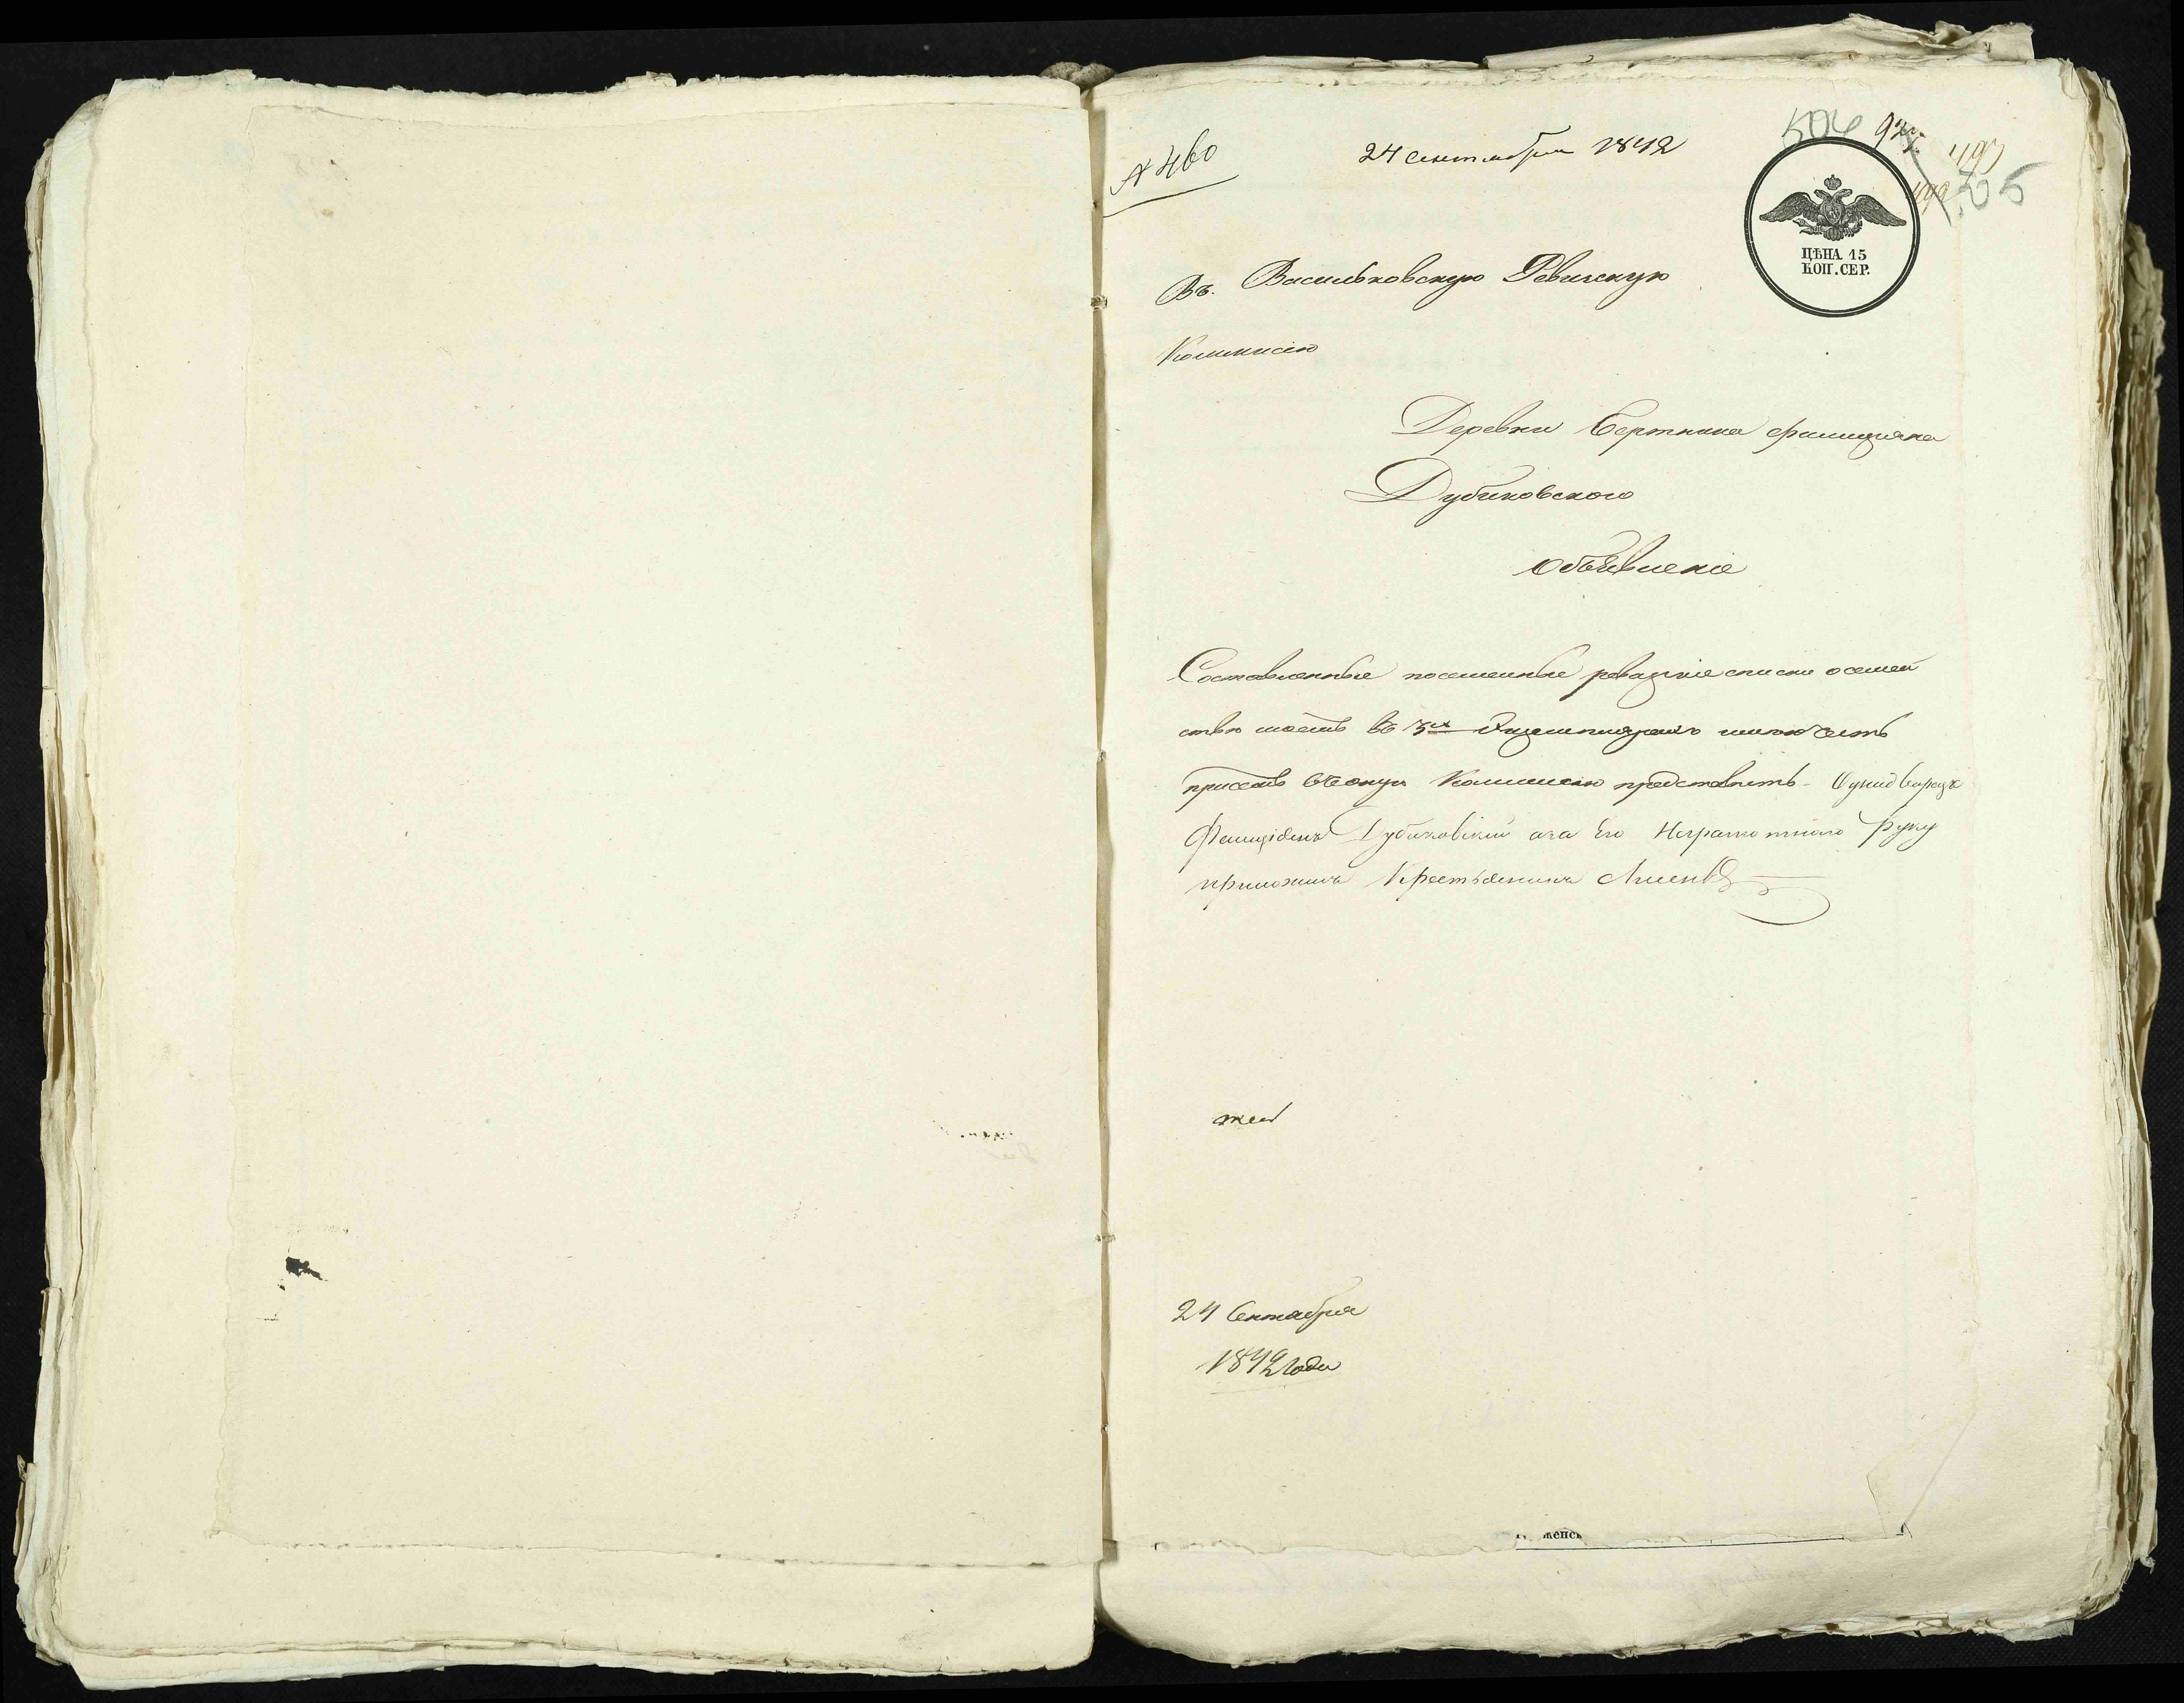 № 460
24 Сентября 1842
506
497
505
ЦѢНА 15
КОП. СЕР.
Въ Васильковскую Ревизскую
Коммисію
Деревни
Дубиковского
объявленіе
Составленные посемейные ревизкіе списки о семей
ствѣ моемъ въ 3х экземплярахъ имѣю честь
присемъ въ оную Коммисію представить. Однодворецъ
Дубиковскій а за Его Неграмотного Руку
приложилъ Крестьянинъ
24 Сентября
1842 года